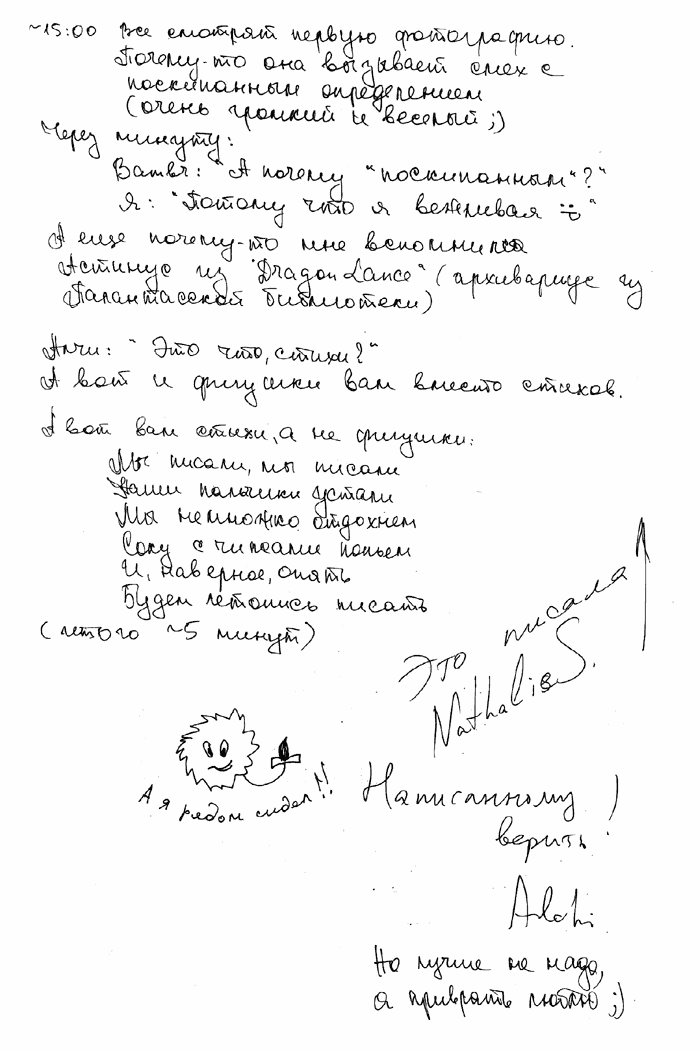 ~15:00 Все смотрят первую фотографию.
Почему-то она вызывает смех с
поскипанным определением
(очень громкий и веселый ;)
Через минуту:
"А почему "поскипанным"?"
Я: "Потому что я вежливая
А еще почему-то мне вспомнился
Астинус из "DragonLance" (архивариус из
Палантасской библиотеки)
"Это что, стихи?"
А вот и фигушки вам вместо стихов.
А вот вам стихи, а не фигушки:
Мы писали, мы писали
Наши пальчики устали
Мы немножко отдохнем
Соку с чипсами попьем
И, наверное, опять
Будем летопись писать
(итого ~5 минут)
Это писала
Nathalie S.
А я рядом сидел!!
Написанному
верить!
Но лучше не надо,
я приврать люблю ;)